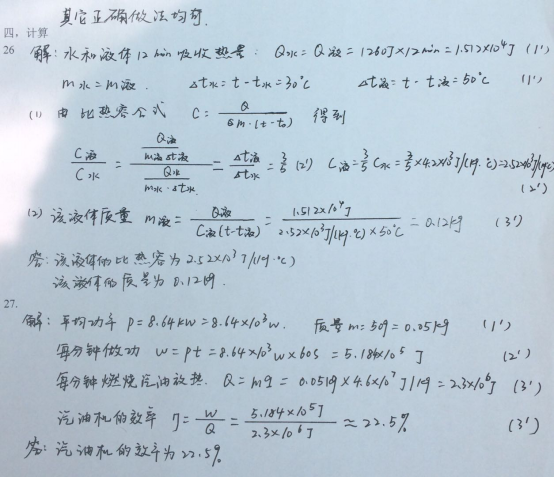 其它正确做法均可.
四，计算
26 解: 水和液体12min吸收热量: Q水=Q液=1260J×12min=1.512×10⁴J (1')
m水=m液. Δt水=t-t水=30℃ Δt液=t-t液=50℃ (1')
(1) 由比热容公式 C=Q/m·(t-t₀) 得到
C液/C水=(Q液/m液Δt液)/(Q水/m水·Δt水)=Δt液/Δt水=3/5 (2') C液=3/5C水=3/5×4.2×10³J/(kg·℃)=2.52×10³J/(kg·℃)
(2')
(2) 该液体质量 m液=Q液/C液(t-t液)=1.512×10⁴J/2.52×10³J/(kg·℃)×50℃=0.12kg (3')
答: 该液体的比热容为2.52×10³J/(kg·℃)
该液体的质量为0.12kg.
27.
解: 平均功率 P=8.64kW=8.64×10³W. 质量m=50g=0.05kg (1')
每分钟做功 W=Pt=8.64×10³W×60s=5.184×10⁵J (2')
每分钟燃烧汽油放热. Q=mq=0.05kg×4.6×10⁷J/kg=2.3×10⁶J (3')
汽油机的效率 η=W/Q=5.184×10⁵J/2.3×10⁶J≈22.5% (3')
答: 汽油机的效率为22.5%